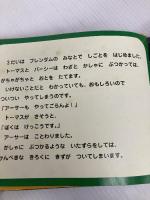 3だいは ブレンダムの みなとで しごとを はじめました。
トーマスと パーシーは わざと かしゃに ぶつかっては、
がちゃがちゃと おとを たてます。
いけないことだと わかっていても、おもしろいので
ついつい やってしまうのです。
「アーサーも やってごらんよ！」
トーマスが さそうと、
「ぼくは けっこうです。」
アーサーは ことわりました。
かしゃに ぶつかるような いたずらをしては、
かんぺきな きろくに きずが ついてしまいます。